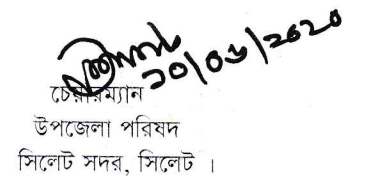 ২০/০৬/২০২০
চেয়ারম্যান
উপজেলা পরিষদ
সিলেট সদর, সিলেট ।